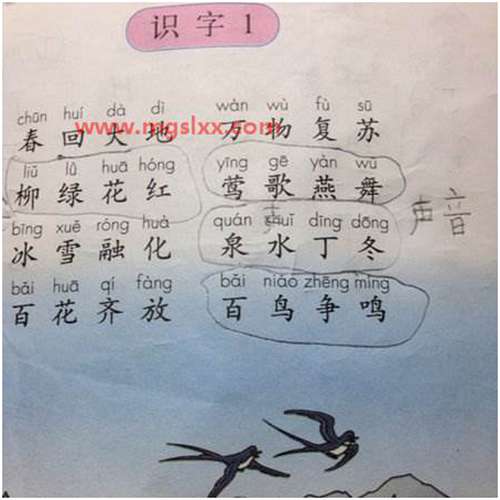 识字1
chūn huí dà dì wàn wù fù sū
春回大地 万物复苏
www.mgslxx.com
liǔ lǜ huā hóng yīng gē yàn wǔ
柳绿花红 莺歌燕舞
bīng xuě róng huà quán shuǐ dīng dōng
冰雪融化 泉水丁冬 声音
bǎi huā qí fàng bǎi niǎo zhēng míng
百花齐放 百鸟争鸣